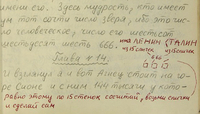 имени его. Здесь мудрость, кто имеет
ум тот сочти число зверя, ибо это чис-
ло человеческое, число его шестьсот
шестьдесят шесть 666.
имя ЛЕНИН СТАЛИН
из 15 спичек из 18 спичек
Глава № 14.
и взглянул я и вот агнец стоит на го-
ре Сионе и с ним 144 тысячи у кото-
равно этому по 18 стенок сосчитай, возьми спички
и сделай сам